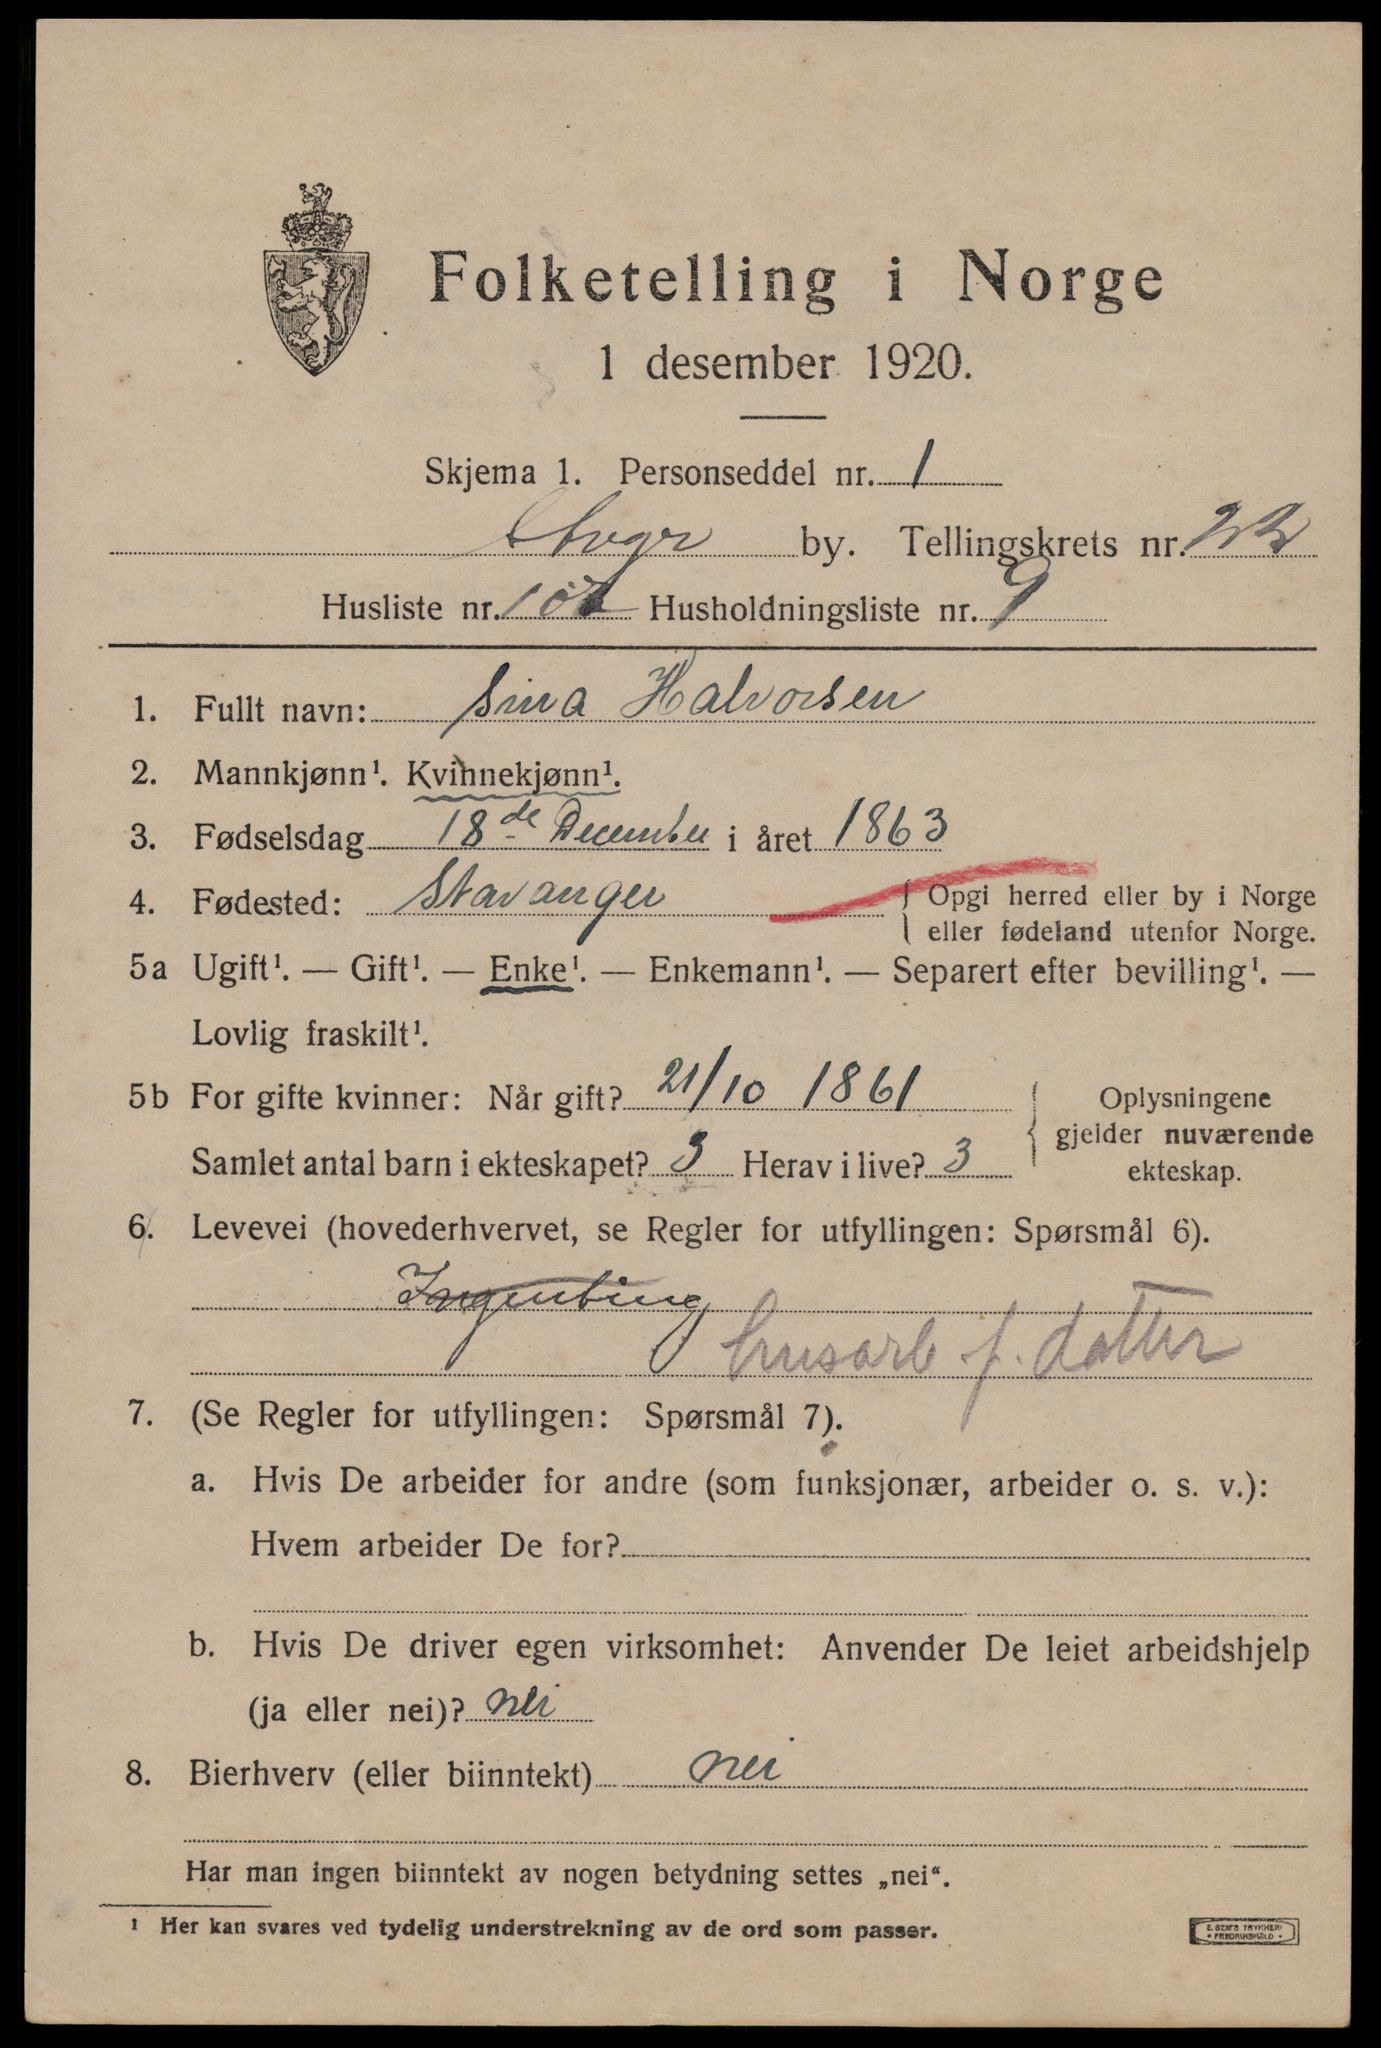 Folketelling i Norge
1 desember 1920.
Skjema 1. Personseddel nr. 1
Svgr by. Tellingskrets nr. 22
Husliste nr. 10 Husholdningsliste nr. 9
1. Fullt navn: Sina Halvorsen
2. Mannkjønn¹. Kvinnekjønn¹.
3. Fødselsdag 18de December i året 1863
4. Fødested: Stavanger { Opgi herred eller by i Norge
eller fødeland utenfor Norge.
5a Ugift¹. — Gift¹. — Enke¹. — Enkemann¹. — Separert efter bevilling¹. —
Lovlig fraskilt¹.
5b For gifte kvinner: Når gift? 21/10 1861 { Oplysningene
gjelder nuværende
Samlet antal barn i ekteskapet? 3 Herav i live? 3 ekteskap.
6. Levevei (hovederhvervet, se Regler for utfyllingen: Spørsmål 6).
Ingenting
husarb f. datter
7. (Se Regler for utfyllingen: Spørsmål 7).
a. Hvis De arbeider for andre (som funksjonær, arbeider o. s. v.):
Hvem arbeider De for?
b. Hvis De driver egen virksomhet: Anvender De leiet arbeidshjelp
(ja eller nei)? nei
8. Bierhverv (eller biinntekt) nei
Har man ingen biinntekt av nogen betydning settes „nei“.
¹ Her kan svares ved tydelig understrekning av de ord som passer.
E. SEM'S TRYKKERI
• FREDRIKSHALD •